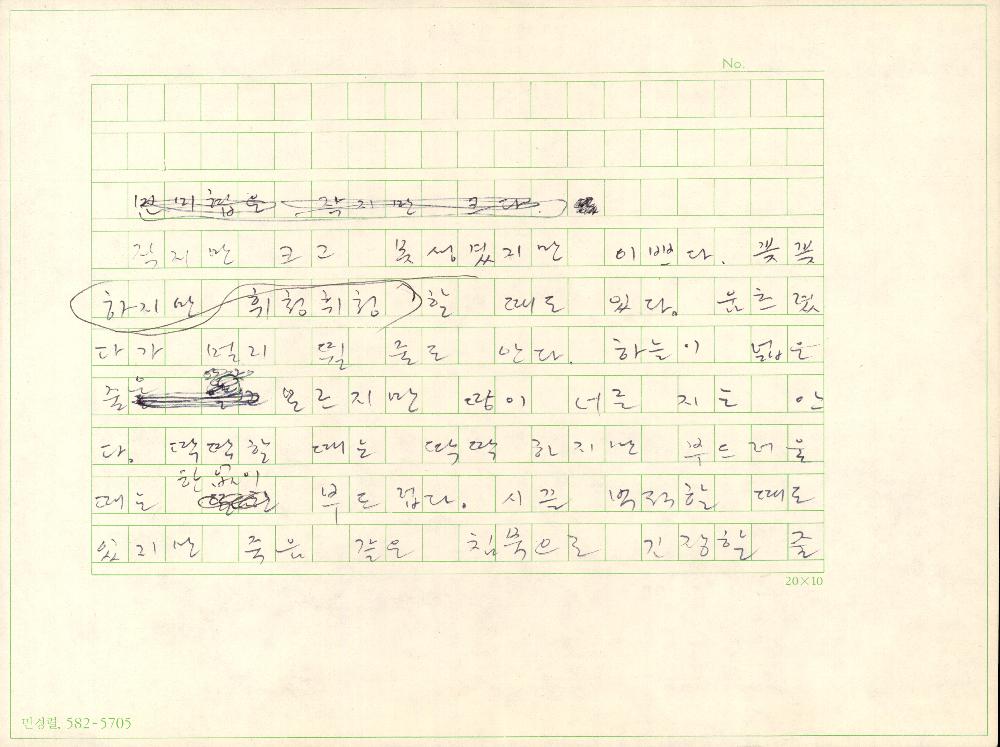 No.
민미협은 작지만 크다.
작지만 크고 못생겼지만 이쁘다. 꿋꿋
하지만 휘청휘청 할 때도 있다. 움츠렸
다가 멀리 뛸 줄도 안다. 하늘이 넓은
줄은 모르지만 땅이 너른 지는 안
다. 딱딱할 때는 딱딱 하지만 부드러울
한없이
때는 부드럽다. 시끌 벅적할 때도
있지만 죽음 같은 침묵으로 긴장할 줄
20×10
민성렬. 582-5705